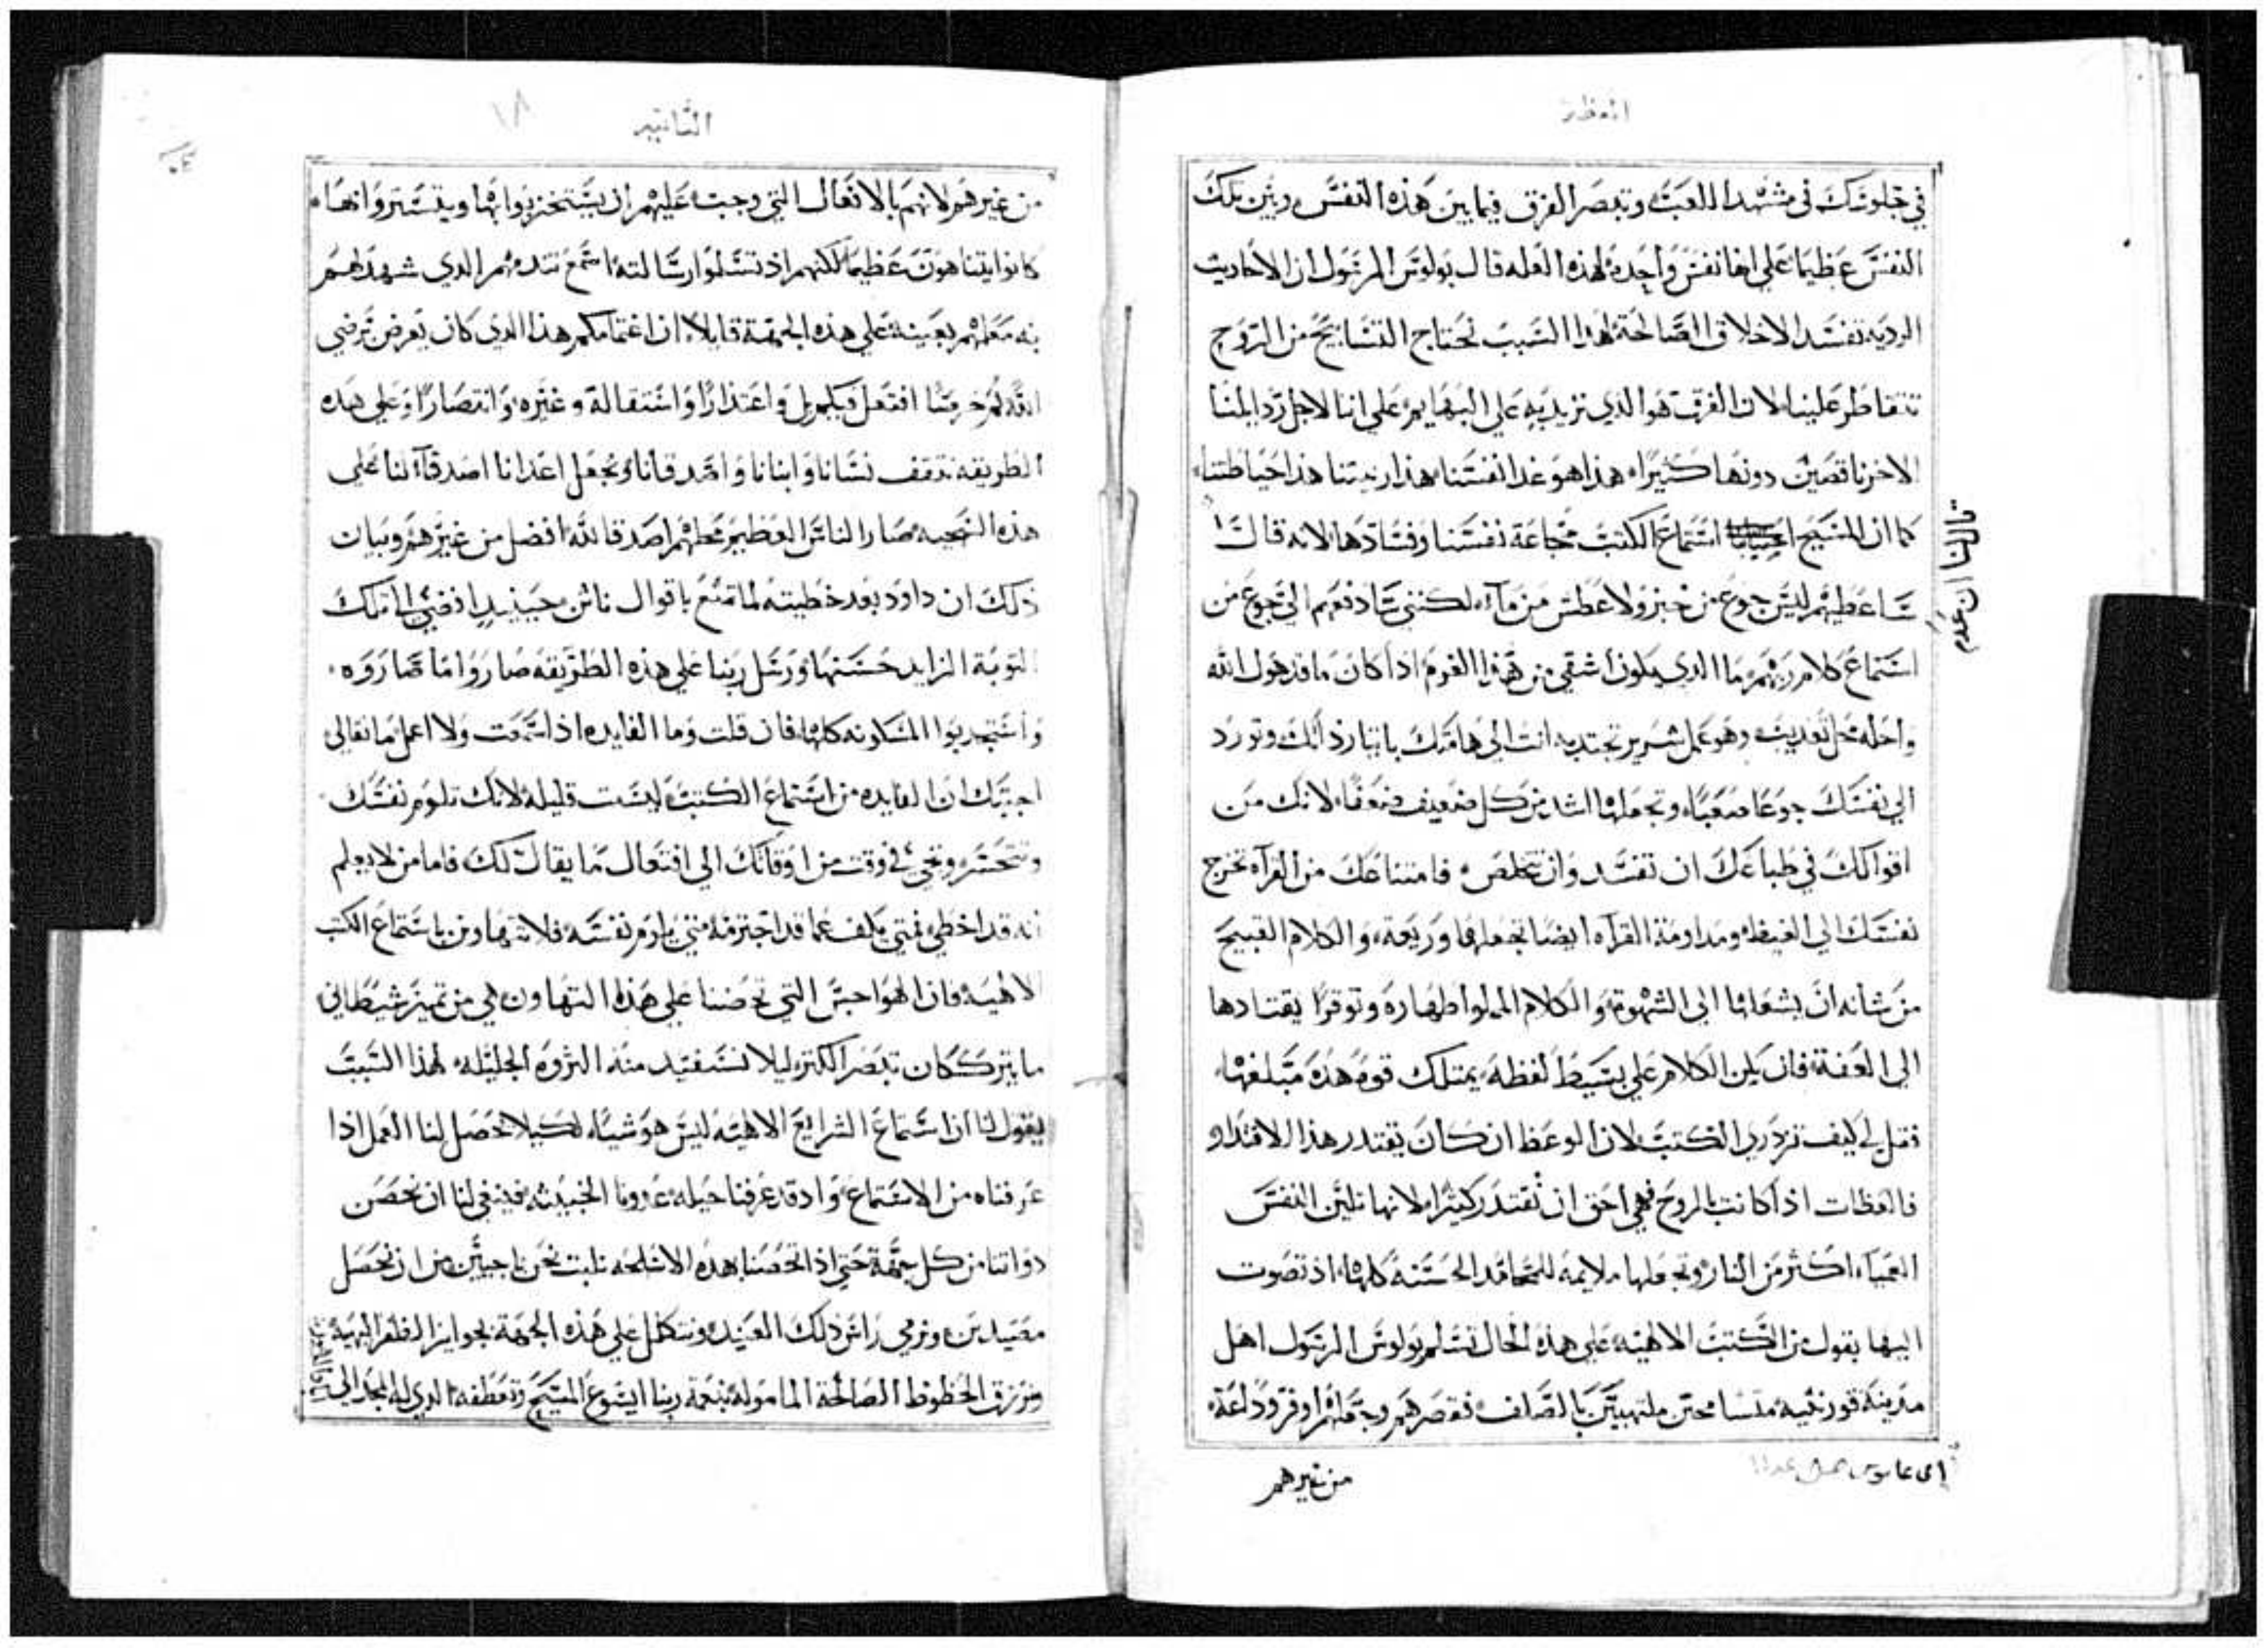 العظة
في جلوتك في مشهد اللعب وتبصر الفرق فيما بين هذه النفس وبين تلك
النفس عظيما علي انها نفس واحده لهذه العله قال بولوس الرسول ان الاحاديث
الرديه تفسد الاخلاق الصالحة لهذا السبب نحتاج التسابيح من الروح
تتقاطر علينا لان الفرق هو الذي نزيد به علي البهايم علي اننا لاجل
الاخر ناقصين دونها كثيرا هذا هو غدا انفسنا هذا زينتنا هذا حياطتنا
كما ان المسيح استماع الكتب مجاعة نفسنا وفسادها لانه قال
قال لنا ان عدم
ساعطيهم ليس جوع من خبز ولا عطش من مآء لكنني سادفعهم الي جوع من
استماع كلام ربهم ما الذي يكون اشقي من هذا القوم اذا كان ما قد هول الله
واحله محل تعذيب وهو عمل شرير تجتدبه انت الي هامتك باتيارك وتورد
الي نفسك جوعا صعبا وتجعلها اشد من كل ضعيف ضعفا لانك من
اقوالك في طباعك ان تفسد وان تتخلص فامتناعك من القرآه تخرج
نفسك الي الغيظ ومداومة القرآه ايضا تجعلها وريعة والكلام القبيح
من شانه ان يشعلها الي الشهوة والكلام المملوا طهارة وتوقرا يقتادها
الي العفة فان يكن الكلام علي بسيط لفظه يمتلك قوة هذه مبلغها
فقل لي كيف تزدري الكتب لان الوعظ ان كان يقتدر هذا الاقتدار
فالعظات اذا كانت بالروح فهي احق ان تقتدر كثيرا لانها تلين النفس
العميآء اكثر من النار وتجعلها ملايمة للمحامد الحسنة كلها اذ تصوت
اليها بقول من الكتب الالهيه علي هذه الحال تسلم بولوس الرسول اهل
مدينة قورنثيه متسامحين ملتهبين بالصلف فقصرهم وجعلهم اوفر وداعة
من غيرهم
الثانيه
١٨
من غيرهم لانهم بالافعال التي وجب عليهم ان يستخزيوا بها ويتستروا انها
كانوا يتناهون عظيما لكنهم اذ تسلموا رسالته اسمع تندمهم الذي شهد لهم
به معلمهم بعينه علي هذه الجهة قايلا ان اغتمامكم هذا الذي كان بعرض يرضي
الله لم خرمنا افتعل فيكم بل واعتذارا واستقالة وغيره وانتصارا وعلي هذه
الطريقه نثقف نسانا وابنانا واصدقانا ونجعل اعدانا اصدقآء لنا علي
هذه السجيه صار الناس العظيم محلهم اصدقا لله افضل من غيرهم وبيان
ذلك ان داود بعد خطيته لما تمتع باقوال ناثن حينيذ افضي الي تلك
التوبة الزايد حسنها ورسل ربنا علي هذه الطريقه صاروا ما صاروه
واستجدبوا المسكونه كلها فان قلت وما الفايده اذا سمعت ولا اعمل ما نقالي
اجبتك ان الفايده من استماع الكتب ليست قليله لانك تلوم نفسك
وتتحسر وتجي في وقت من اوقاتك الي افتعال ما يقال لك فاما من لا يعلم
انه قد اخطي فمتي يكف عما قد اجترمه متي يلوم نفسه فلا نتهاون باستماع الكتب
الالهيه فان الهواجس التي تحضنا علي هذا التهاون هي من تميز شيطاني
ما يترك كان تبصر الكنز ليلا نستفيد منه الثروه الجليله لهذا السبب
يقول لنا ان استماع الشرايع الالهيه ليس هو شياء لكيلا تحصل لنا العمل اذا
عرفناه من الاستماع واذ قد عرفنا حيله عدونا الخبيثه فينبغي لنا ان نحصن
ذواتنا من كل جهة حتي اذا تحصنا بهذه الاسلحه نلبث نحن ناجيين من ان نحصل
مصيدين ونرمي راس ذلك العنيد ونتكلل علي هذه الجهة بجوايز الظفر البهية
ونرزق الحظوظ الصالحة المامولة بنعمة ربنا ايسوع المسيح وتعطفه الذي له المجد الي